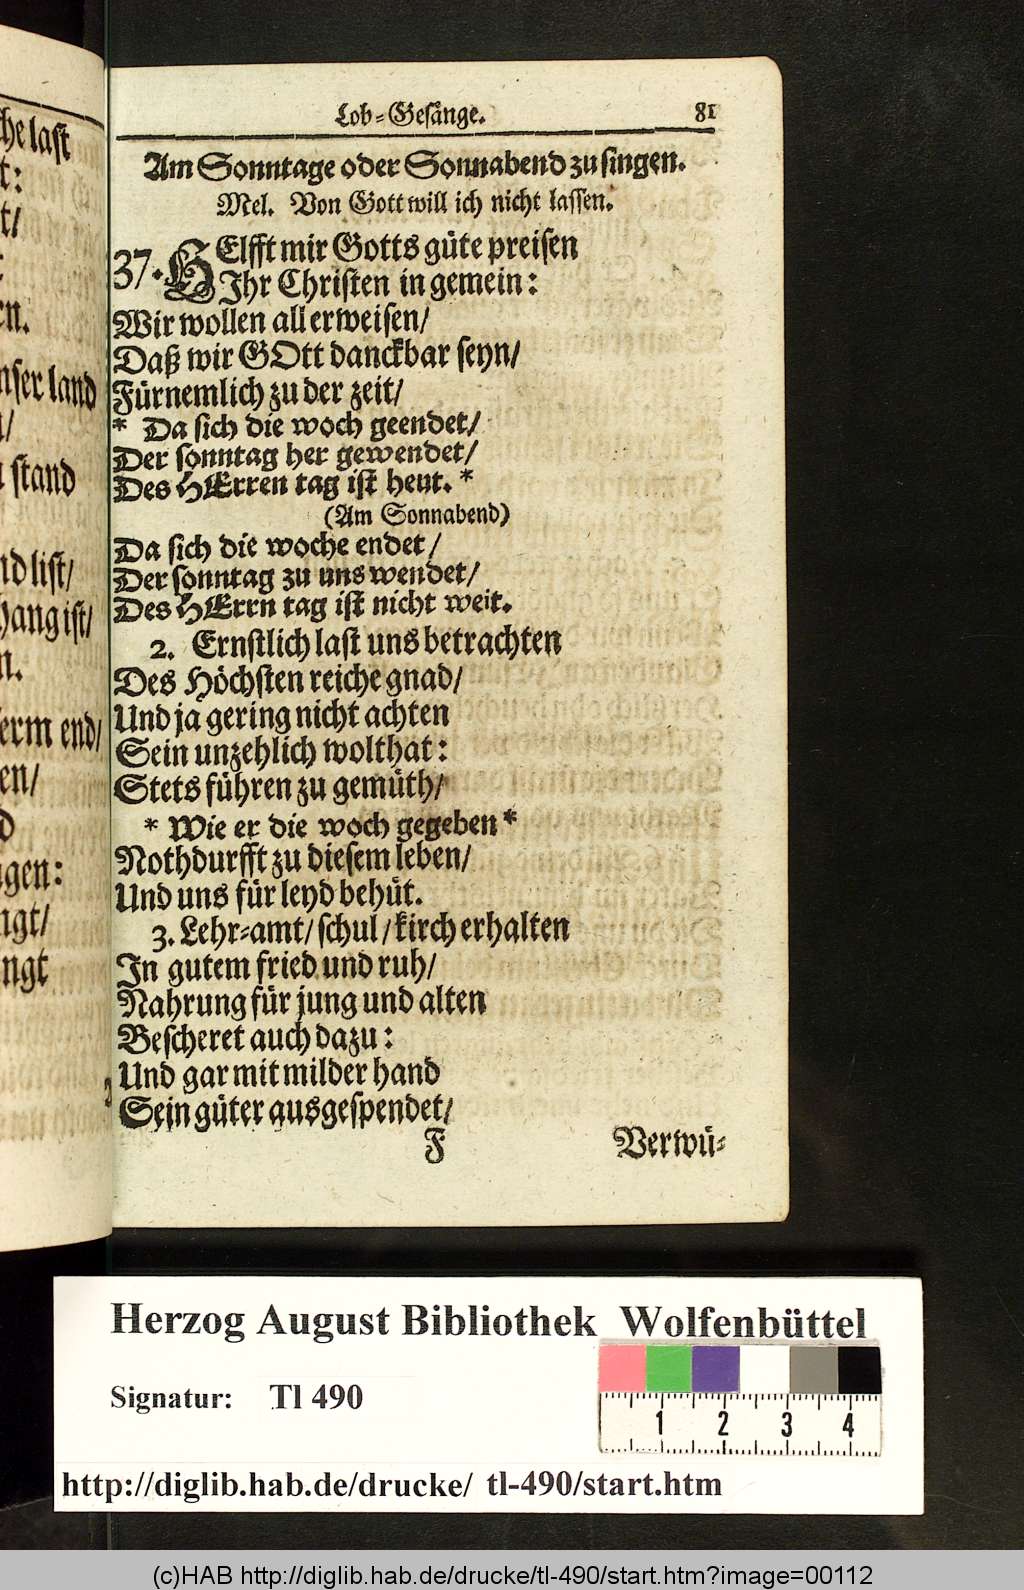 Lob-Gesänge. 81
Am Sonntage oder Sonnabend zu singen.
Mel. Von Gott will ich nicht lassen.
37. HElfft mir Gotts güte preisen
Ihr Christen in gemein:
Wir wollen all erweisen/
Daß wir GOtt danckbar seyn/
Fürnemlich zu der zeit/
* Da sich die woch geendet/
Der sonntag her gewendet/
Des HErren tag ist heut. *
(Am Sonnabend)
Da sich die woche endet/
Der sonntag zu uns wendet/
Des HErrn tag ist nicht weit.
2. Ernstlich last uns betrachten
Des Höchsten reiche gnad/
Und ja gering nicht achten
Sein unzehlich wolthat:
Stets führen zu gemüth/
* Wie er die woch gegeben *
Nothdurfft zu diesem leben/
Und uns für leyd behüt.
3. Lehr-amt/ schul/ kirch erhalten
In gutem fried und ruh/
Nahrung für jung und alten
Bescheret auch dazu:
Und gar mit milder hand
Sein güter ausgespendet/
F Verwü-
he last
t:
t/
en.
nser land
n/
stand
nd list/
hang ist/
n.
erm end/
en/
d
gen:
ngt/
ngt
Herzog August Bibliothek Wolfenbüttel
Signatur: Tl 490
1 2 3 4
http://diglib.hab.de/drucke/ tl-490/start.htm
(c)HAB http://diglib.hab.de/drucke/tl-490/start.htm?image=00112